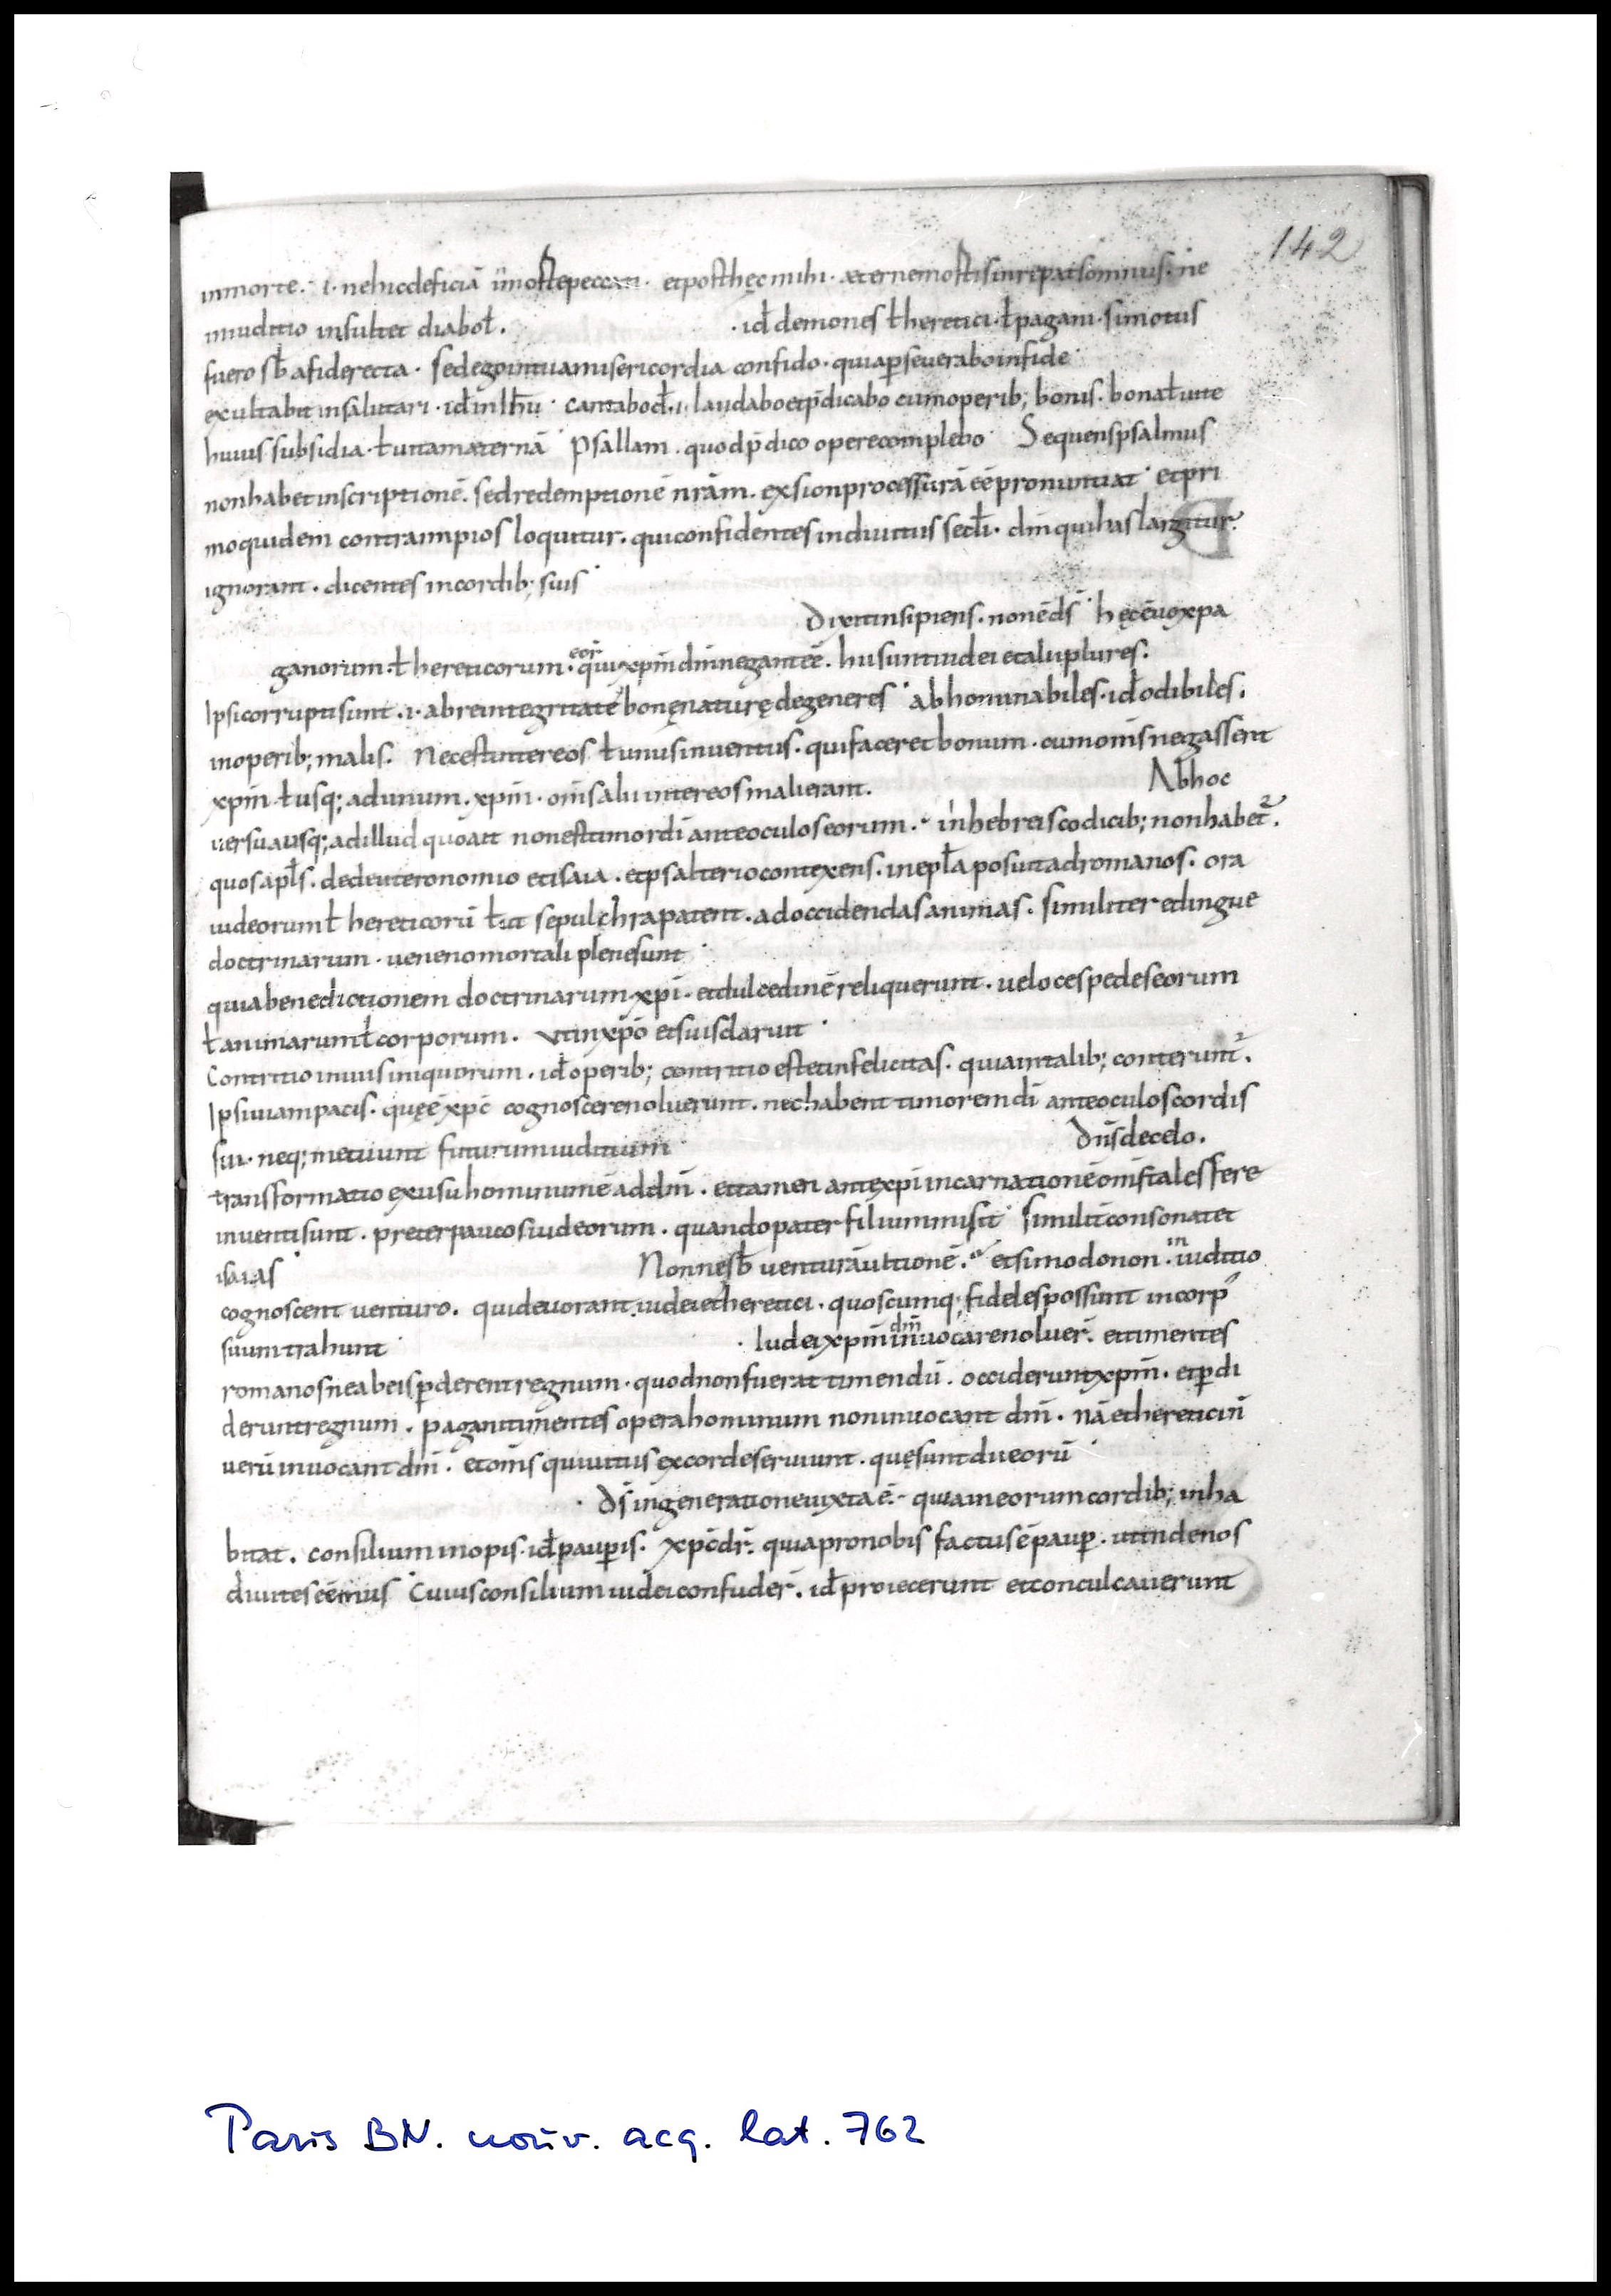 142
inmorte. ·i· nehicdeficiā īmortepeccati· etposthęcmihi· ęternemortisinrepatsomnus· ne
iniuditio insultet diabol̄.
· id̄ demones ł heretici· ł pagani· simotus
fuero sb̄ afiderecta· sedegointuamisericordia confido· quiap̄severaboinfide·
exultabit insalutari· id̄ in Ihū· cantabo dō· ·i· laudaboetp̄dicabo cumoperib; bonis· bona ł vite
huius subsidia· ł vitamaeternā· Psallam· quodp̄dico operecomplebo· Sequenspsalmus
nonhabetinscriptionē. sedredemptionē nrām. exsionprocessurā eē pronuntiat· etpri
moquidem contraimpios loquitur. quiconfidentes indivitiis secl̄i· dm̄ quihas largitur.
ignorant· dicentes incordib; suis·
Dixitinsipiens. nonē ds̄· hęc ē vox pa
ganorum· ł hereticorum. eor̄ qui xpm̄ dm̄ negant eē. hi sunt iudei etalii plures.
Ipsi corrupti sunt. ·i· abreintegritate bonęnaturę degeneres· abhominabiles· id̄ odibiles.
inoperib; malis. Necestintereos ł unus inventus. quifaceret bonum. cumom̄s negassent
xpm̄ ł usq; adunum. xpm̄· om̄s alii intereos malierant.
Abhoc
versu ausq; adillud quoait nonesttimordī anteoculos eorum. inhebreis codicib; nonhabet̄.
quos apl̄s. dedeuteronomio etisaia. etpsalterio contexens. inepl̄a posuit adromanos. ora
iudeorum ł hereticorū ł ut sepulchra patent. adoccidendas animas. similiter et lingue
doctrinarum· veneno mortali plene sunt·
quia benedictionem doctrinarum xpī· etdulcedinē reliquerunt. veloces pedes eorum
ł animarum ł corporum. ut in xpō et suis claruit·
Contritio inviis iniquorum. id̄ operib; contritio est et infelicitas. quia intalib; conterunt̄.
Ipsi viam pacis. quęē xpc̄ cognoscere noluerunt. nec habent timorem dī ante oculos cordis
sui· neq; metuunt futurum iuditium·
Dn̄s de celo.
transformatio ex usu hominum ē ad dm̄. ettamen ante xpī incarnationē om̄s tales fere
inventi sunt. preter paucos iudeorum. quando pater filium misit· simulit̄ consonat et
isaias·
Nonne sb̄ venturā ultionē. etsi modo non in iuditio
cognoscent venturo. qui devorant iudei et heretici. quoscumq; fideles possunt in corp̄
suum trahunt·
· Iudei xpm̄ dm̄ invocare noluer̄. ettimentes
romanos neabeis p̄derent regnum· quodnonfuerat timendū. occiderunt xpm̄. etp̄di
derunt regnum. pagani timentes opera hominum noninvocant dm̄. nā et heretici n̄
verū invocant dm̄. etom̄s qui vitiis excorde serviunt. quę sunt dii eorū·
· Ds̄ ingeneratione iusta ē. quia in eorum cordib; inha
bitat. consilium inopis· id̄ paup̄is· xpc̄ dr̄. quia pronobis factus ē paup̄. ut inde nos
divites eēmus· Cuius consilium iudei confuder̄. id̄ proiecerunt et conculcaverunt
Paris BN. nouv. acq. lat. 762